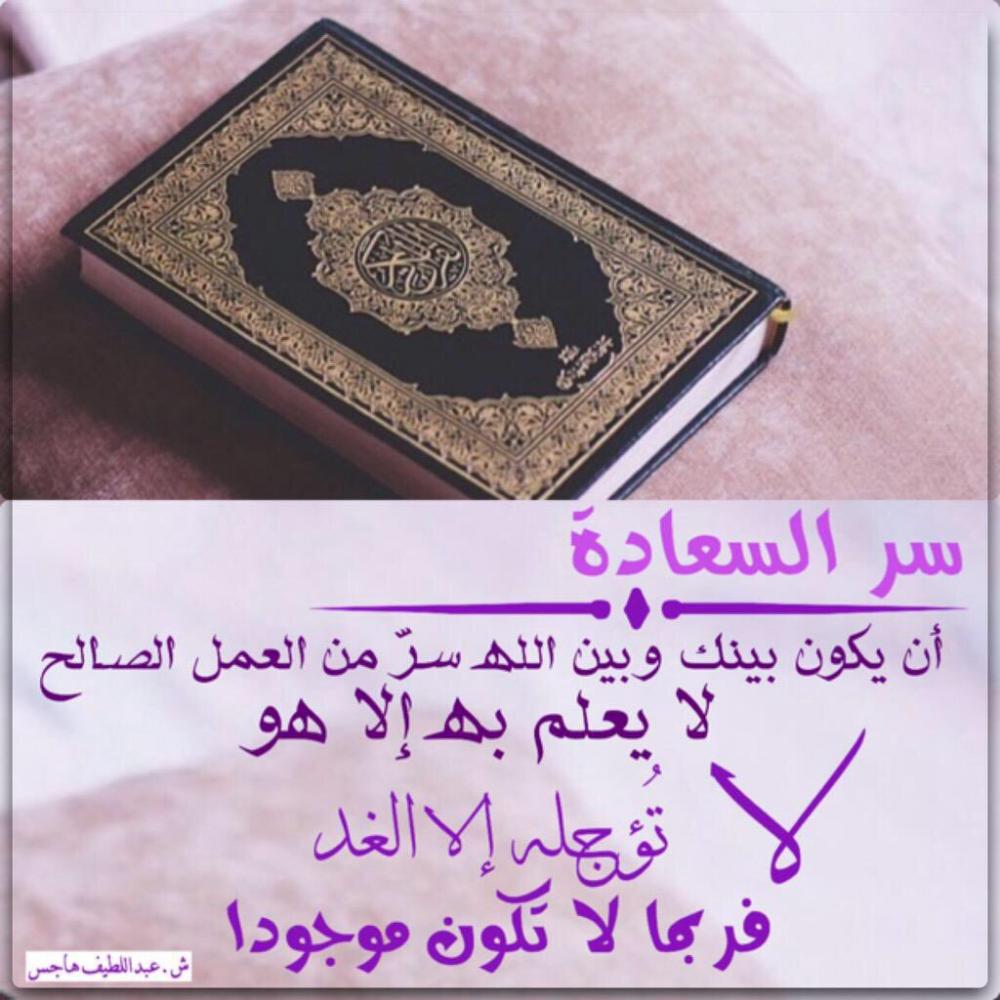 القرآن الكريم
سر السعادة
أن يكون بينك وبين الله سرّ من العمل الصالح
لا يعلم به إلا هو
لا تُؤجله إلا الغد
فربما لا تكون موجودا
ش.عبداللطيف هاجس